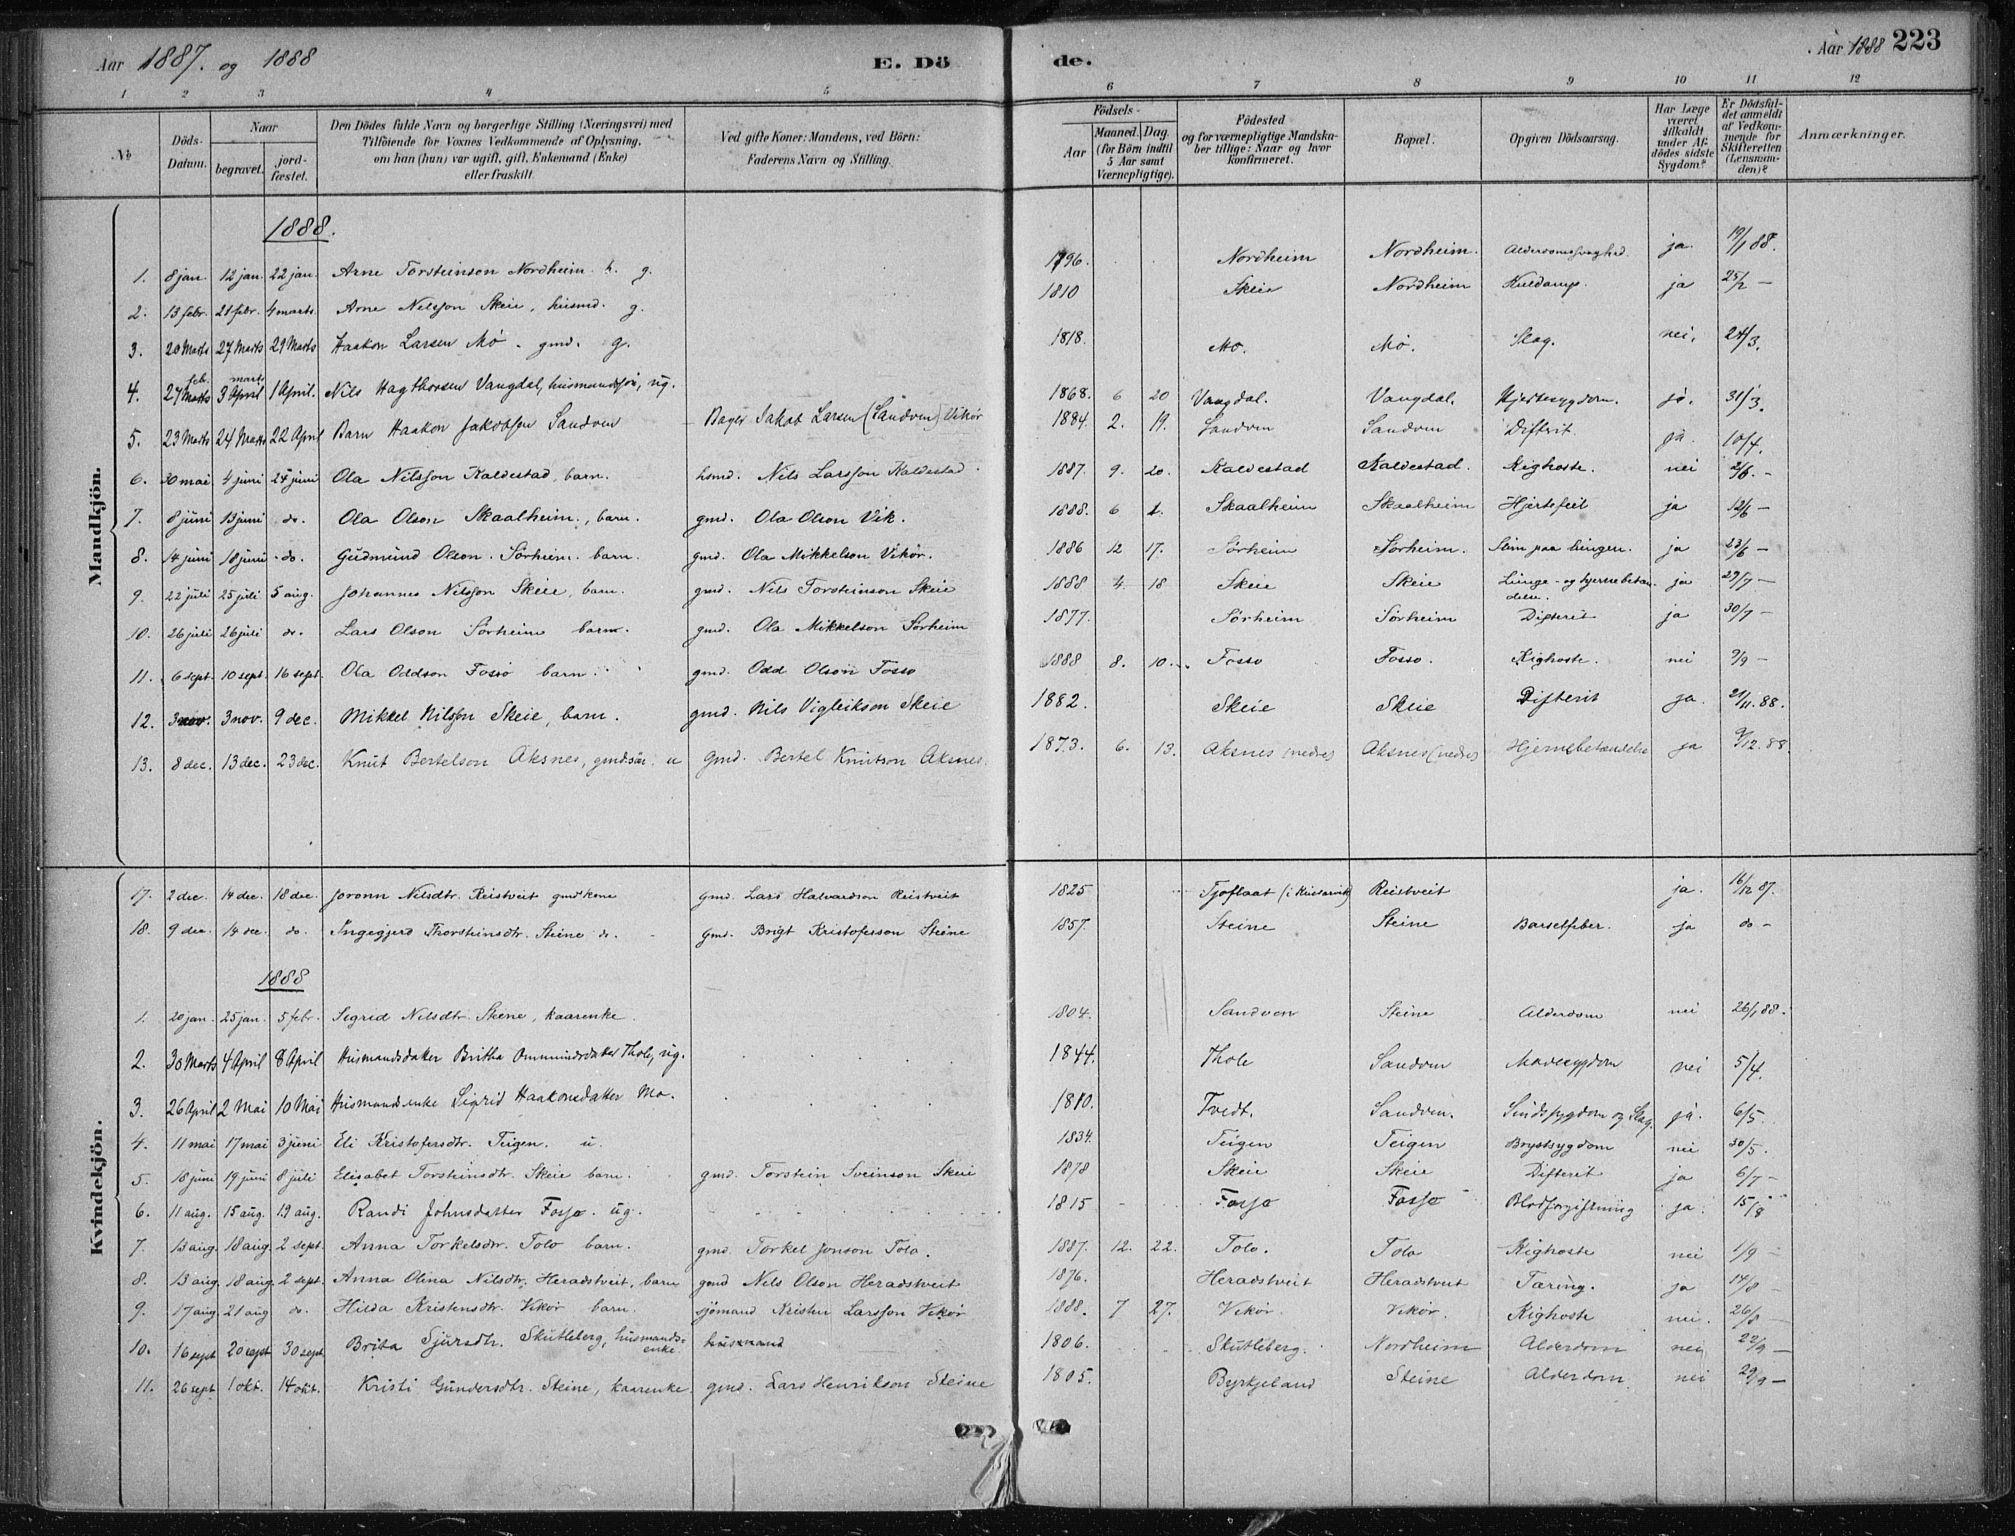 Aar 1887. og 1888
E. Dö de.
Aar 1888 223
1 2 3 4 5 6 7 8 9 10 11 12
No
Döds-Datum.
Naar
begravet.
jord-fæstet.
Den Dödes fulde Navn og borgerlige Stilling (Næringsvei) med
Tilföiende for Voxnes Vedkommende af Oplysning,
om han (hun) var ugift, gift, Enkemand (Enke)
eller fraskilt.
Ved gifte Koner: Mandens, ved Börn:
Faderens Navn og Stilling.
Födsels-
Aar
Maaned. Dag.
(for Börn indtil
5 Aar samt
Værnepligtige).
Födested
og for værnepligtige Mandska-
ber tillige: Naar og hvor
konfirmeret.
Bopæl.
Opgiven Dödsaarsag.
Har Læge
været
tilkaldt
under Af-
dödes sidste
Sygdom?
Er Dödsfal-
det anmeldt
af Vedkom-
mende for
Skifteretten
(Lensman-
den)?
Anmærkninger.
Mandkjön.
1888.
1. 8 jan. 12 jan. 22 jan. Arne Torsteinson Nordheim. k. g. 1796. Nordheim Nordheim. Alderdomssvaghed. ja. 19/1 88.
2. 13 febr. 21 febr. 4 marts. Arne Nilsson Skeie, husmd. g. 1810 Skeie Nordheim ja 25/2 —
3. 20 Marts 27 Marts 29 Marts Haakon Larsen Mo. gmd. g. 1818. Mo. Mo. Slag. nei. 24/3.
feb. marts
4. 27 Marts 3 April 1 April. Nils Hagthorsen Vangdal, husmandssön, ug. 1868. 6 20 Vangdal. Vangdal. Hjertesygdom. ja. 31/3.
5. 23 Marts 24 Marts 22 April Barn Haakon Jakobsen Sandven Bager Jakob Larsen (Sandven) Vikör 1884. 2. 19. Sandven Sandven Difterit. ja. 10/4.
6. 30 mai 4 juni 24 juni Ola Nilsson Kaldestad, barn. husmd. Nils Larsson Kaldestad 1887. 9. 20. Kaldestad Kaldestad. Kighoste. nei 2/6. -
7. 8 juni 13 juni do. Ola Olson Skaalheim., barn. gmd. Ola Olson Vik. 1888. 6 1. Skaalheim Skaalheim Hjertefeil ja 12/6 —
8. 14 juni 18 juni do. Gudmund Olson. Sörheim. barn. gmd. Ola Mikkelson Vikör. 1886 12 17. Sörheim Sörheim. Slim paa Lungen. ja 23/6 —
9. 22 juli 25 juli 5 aug. Johannes Nilsson Skeie, barn. gmd. Nils Torsteinson Skeie 1888 4. 18 Skeie Skeie Lunge- og hjernebetændelse. ja 29/7 —
10. 26 juli 26 juli do. Lars Olson Sörheim barn. gmd. Ola Mikkelson Sörheim 1877. Sörheim. Sörheim Difterit ja 30/7 —
11. 6 sept. 10 sept. 16 sept. Ola Oddson Fosso barn. gmd. Odd Olson Fosso 1888 8. 10. Fosso Fosso. Kighoste. nei 9/9 —
12. 3 nov. 3 nov. 9 dec. Mikkel Nilsson Skeie, barn. gmd. Nils Vigleikson Skeie 1882. Skeie Skeie Difterit ja. 21/11. 88.
13. 8 dec. 13 dec. 23 dec. Knut Bertelson Aksnes, gmdsön. u gmd. Bertel Knutson Aksnes. 1873. 6. 13. Aksnes (nedre) Aksnes (nedre) Hjernebetændelse ja 9/12. 88
Kvindekjön.
17. 2 dec. 14 dec. 18 dec. Joronn Nilsdtr. Reistveit gmdkone gmd. Lars Halvardson Reistveit 1825 Tjoflaat Reistveit ja. 16/12 87.
18. 9 dec. 14 dec. do. Ingegjerd Thorsteinsdtr. Steine do. gmd. Brigt Kristofersson Steine 1857. Steine Steine Barselfeber. ja do —
1888
1. 20 jan. 25 jan. 5 febr. Sigrid Nilsdtr. Stene, kaarenke. 1804. Sandven Steine Alderdom nei 26/1 88.
2. 30 Marts 4 April 8 April Husmandsdatter Britha Ommundsdatter Thole, ug. 1844. Thole Sandven Mavesygdom nei 5/4.
3. 26 April 2 Mai 10 Mai Husmandsenke Sigrid Haakonsdatter Mo. 1810. Tvedt. Sandven. Sindssygdom og Slag. ja. 6/5.
4. 11 mai 17 mai 3 juni Eli Kristofersdtr. Teigen. u. 1834. Teigen Teigen Brystsygdom nei 30/5.
5. 18 juni 19 juni 8 juli Elisabet Torsteinsdtr. Skeie barn. gmd. Torstein Sveinson Skeie 1878 Skeie Skeie Difterit ja 6/7 —
6. 11 aug. 15 aug. 19 aug. Randi Johnsdatter Fosse. ug. 1815 Fosse Fosse Blodforgiftning ja. 15/8
7. 13 aug. 18 aug. 2 sept. Anna Torkelsdtr. Tolo barn. gmd. Torkel Jonson Tolo. 1887. 12. 22. Tolo. Tolo Kighoste nei 1/9 -
8. 13 aug. 18 aug. 2 sept. Anna Olina Nilsdtr. Heradstveit, barn gmd Nils Olson Heradstveit 1876. Heradstveit Heradstveit Tæring. ja 14/8 -
9. 17 aug. 21 aug do. Hilda Kristensdtr. Vikör barn. sjömand Kristen Larsson Vikör 1888. 7 27. Vikör. Vikör. Kighoste nei. 26/8 —
10. 16 sept 20 sept 30 sept Brita Sjursdtr. Skutleberg, husmandsenke. husmand 1806. Skutleberg. Nordheim Alderdom nei 22/9 —
11. 26 sept. 1 okt. 14 okt. Kristi Gundersdtr. Steine, kaarenke. gmd. Lars Henrikson Steine 1805. Byrkjeland Steine Alderdom nei 29/9 —